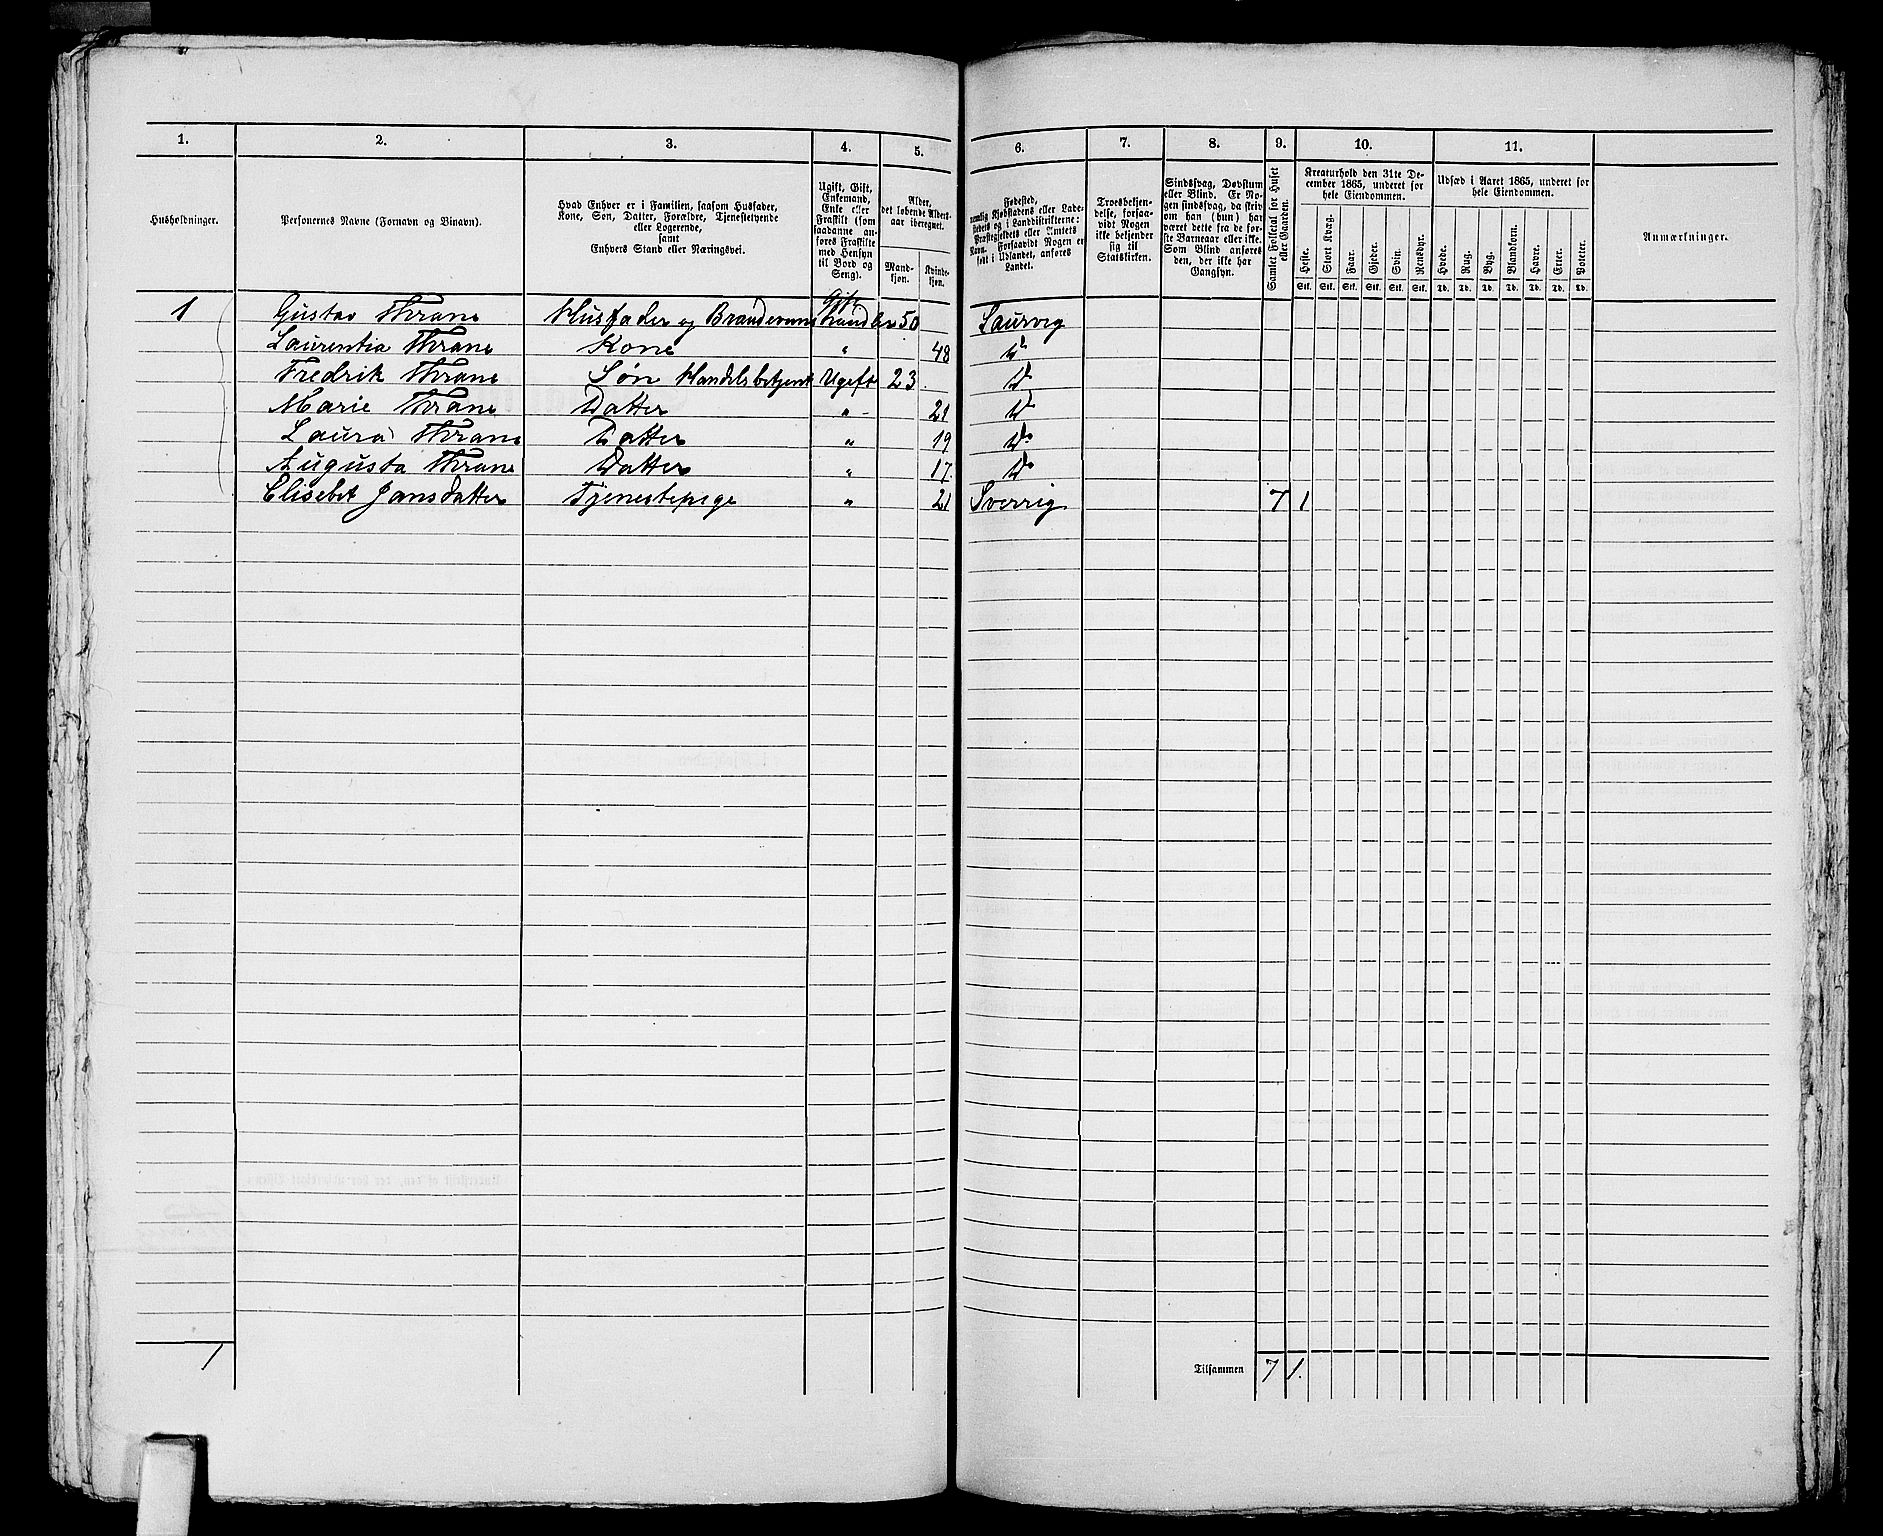 1. 2. 3. 4. 5. 6. 7. 8. 9. 10. 11.
Husholdninger.
Personernes Navne (Fornavn og Binavn).
Hvad Enhver er i Familien, saasom Husfader,
Kone, Søn, Datter, Forældre, Tjenestetyende
eller Logerende,
samt
Enhvers Stand eller Næringsvei.
Ugift, Gift,
Enkemand,
Enke eller
Fraskilt (som
saadanne an-
føres Fraskilte
med Hensyn
til Bord og
Seng).
Alder,
det løbende Alders-
aar iberegnet.
Mand-
kjøn.
Kvinde-
kjøn.
Fødested,
nemlig Kjøbstadens eller Lade-
stedets og i Landdistrikterne:
Præstegjeldets eller Amtets
Navn. Forsaavidt Nogen er
født i Udlandet, anføres
Landet.
Troesbekjen-
delse, forsaa-
vidt Nogen
ikke bekjender
sig til
Statskirken.
Sindssvag, Døvstum
eller Blind. Er No-
gen sindssvag, da skriv
om han (hun) har
været dette fra de før-
ste Barneaar eller ikke.
Som Blind anføres
den, der ikke har
Gangsyn.
Samlet Folketal for Huset
eller Gaarden.
Kreaturhold den 31te De-
cember 1865, underet for
hele Eiendommen.
Heste. Stort Kvæg. Faar. Gjeder. Svin. Rensdyr.
Stk. Stk. Stk. Stk. Stk. Stk.
Udsæd i Aaret 1865, underet for
hele Eiendommen.
Hvede. Rug. Byg. Blandkorn. Havre. Erter. Poteter.
Td. Td. Td. Td. Td. Td. Td.
Anmærkninger.
1 Gustav Thrane Husfader og Brændeviins Handler Gift 50 Laurvig
Laurentia Thrane Kone " 48 Do
Fredrik Thrane Søn Handelsbetjent Ugift 23 Do
Marie Thrane Datter " 21 Do
Laura Thrane Datter " 19 Do
Augusta Thrane Datter " 17 Do
Elisebet Jansdatter Tjenestepige " 21 Sverrig 7 1
1 Tilsammen 7 1.